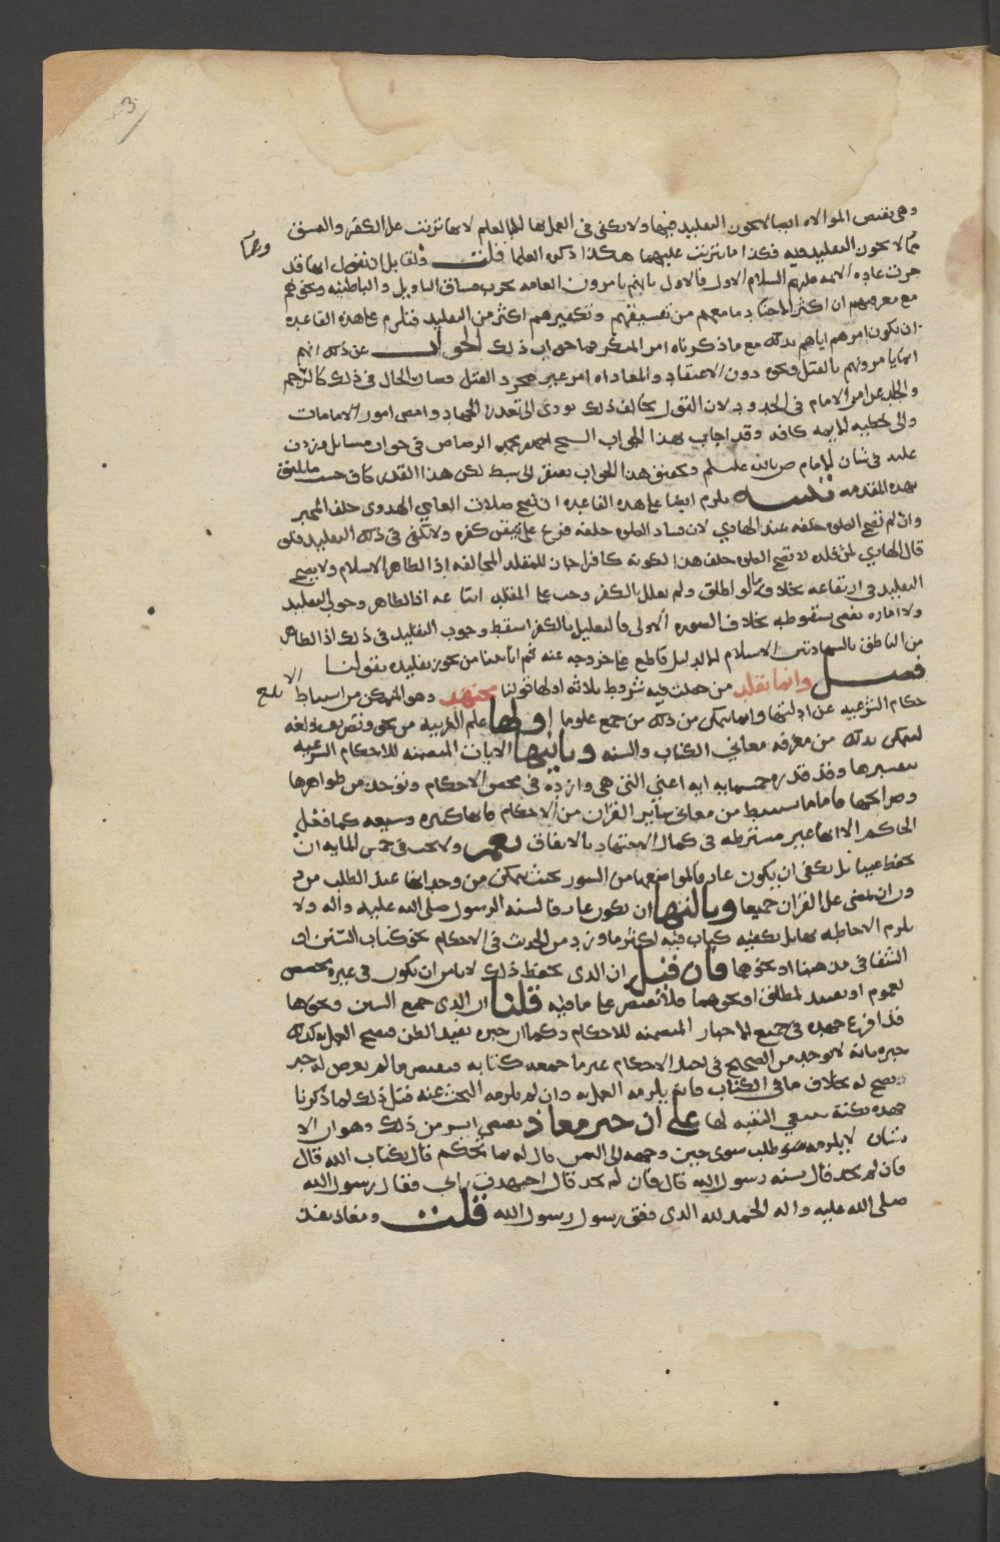 3
وهي نقيض الموالاة ايضا لا يجوز التقليد فيها ولا يكفي في العمل بها الا العلم لانها ترتبت على الكفر والفسق
وهما
مما لا يجوز التقليد فيه فكذا ما يترتب عليهما هكذا ذكره العلما قلت ولقايل ان يقول انها قد
جرت عادة الايمة عليهم السلام الاول فالاول بانهم يامرون العامه بحرب فساق التاويل والباطنيه ونحوهم
مع معرفتهم ان اكثر الاجناد ما معهم من تفسيقهم وتكفيرهم اكثر من التقليد فيلزم على هذه القاعده
ان يكون امرهم اياهم بذلك مع ما ذكرناه امر المنكر فما جواب ذلك الجواب عن ذلك انهم
انما يامرونهم بالقتل ونحوه دون الاعتقاد والمعاداه امر غير مجرد القتل فصار الحال في ذلك كالرجم
والجلد عن امر الامام في الحدود لان القول بخلاف ذلك يودي الى تعذر الجهاد وامضى امور الامامات
والى تخطية الايمه كافه وقد اجاب بهذا الجواب الشيخ احمد بن محمد الرصاص في جواب مسايل وردت
عليه في شان الامام وتحقيق هذا الجواب يفتقر الى بسط لكن هذا القدر كاف حسب ما يليق
بهذه المقدمه يلزم ايضا على هذه القاعده ان تصح صلاة العامي الهدوي خلف المجبر
وان لم تصح الصلوه خلفه عند الهادي لان فساد الصلوه خلفه فرع على تيقن كفره ولا يكفي في ذلك التقليد فلو
قال الهادي لمن قلده لا تصح الصلوه خلف هذا لكونه كافرا جاز للمقلد المخالفه اذ الظاهر الاسلام ولا يصح
التقليد في ارتفاعه بخلاف ما لو اطلق ولم يعلل بالكفر وجب على المقلد اتباعه اذ الظاهر وجوب التقليد
ولا اماره تقضي بسقوطه بخلاف الصوره الاولى فالتعليل بالكفر اسقط وجوب التقليد في ذلك اذ الظاهر
من الناطق بالشهادتين الاسلام الا لدليل قاطع على خروجه عنه ثم انا بينا من يجوز تقليده بقولنا
فصل وانما يقلد من جمعت فيه شروط ثلاثه اولها قولنا مجتهد وهو المتمكن من استنباط الا
حكام الشرعيه عن ادلتها وانما يتمكن من ذلك من جمع علوما اولها علم العربيه من نحو وتصريف ولغه
ليتمكن بذلك من معرفه معاني الكتاب والسنه وثانيها الايات المتضمنه للاحكام الشرعيه
بتفسيرها وقد قدرت خمسمايه ايه اعني التي هي وارده في محض الاحكام وتوخذ من ظواهرها
وصرايحها فاما ما يستنبط من معاني ساير القران من الاحكام فانها كثيره وسيعه كما فعل
الحاكم الا انها غير مشترطه في كمال الاجتهاد بالاتفاق نعم ولا يجب في خمس المايه ان
تحفظ غيبا بل يكفي ان يكون عارفا لمواضعها من السور بحيث يتمكن من وجدانها عند الطلب من د
ون ان يمضي على القران جميعا وثالثها ان يكون عارفا لسنه الرسول صلى الله عليه واله ولا
يلزم الاحاطه بها بل يكفيه كتاب فيه اكثر ما ورد من الحديث في الاحكام نحو كتاب السنن او
الشفا في مذهبنا او نحوهما فان قيل ان الذي يحفظ ذلك لا يامن ان يكون في غيره تخصيص
لعموم او تقييد لمطلق او نحوهما فلا يقتصر على ما فيه قلنا ان الذي جمع السنن ونحوها
قد افرغ جهده في جميع الاخبار المتضمنه للاحكام وكما ان خبره يفيد الظن فيصح العمل به كذلك
خبره بانه لا يوجد من الصحيح في احد الاحكام غير ما جمعه كتابه فيقتصر ما لم يعرض له خبر
يصح له بخلاف ما في الكتاب فانه يلزمه العمل به وان لم يلزمه البحث عنه قبل ذلك لما ذكرنا
فهذه نكتة ينبغي التنبه لها على ان خبر معاذ يقضي ايسر من ذلك وهو ان الا
نسان لا يلزمه طلب سوى حين وجهه الى اليمن قال له بما تحكم قال بكتاب الله قال
فان لم تجد قال بسنه رسول الله قال فان لم تجد قال اجتهدت راي فقال رسول الله
صلى الله عليه واله الحمد لله الذي وفق رسول رسول الله قلت ومعاذ بعث